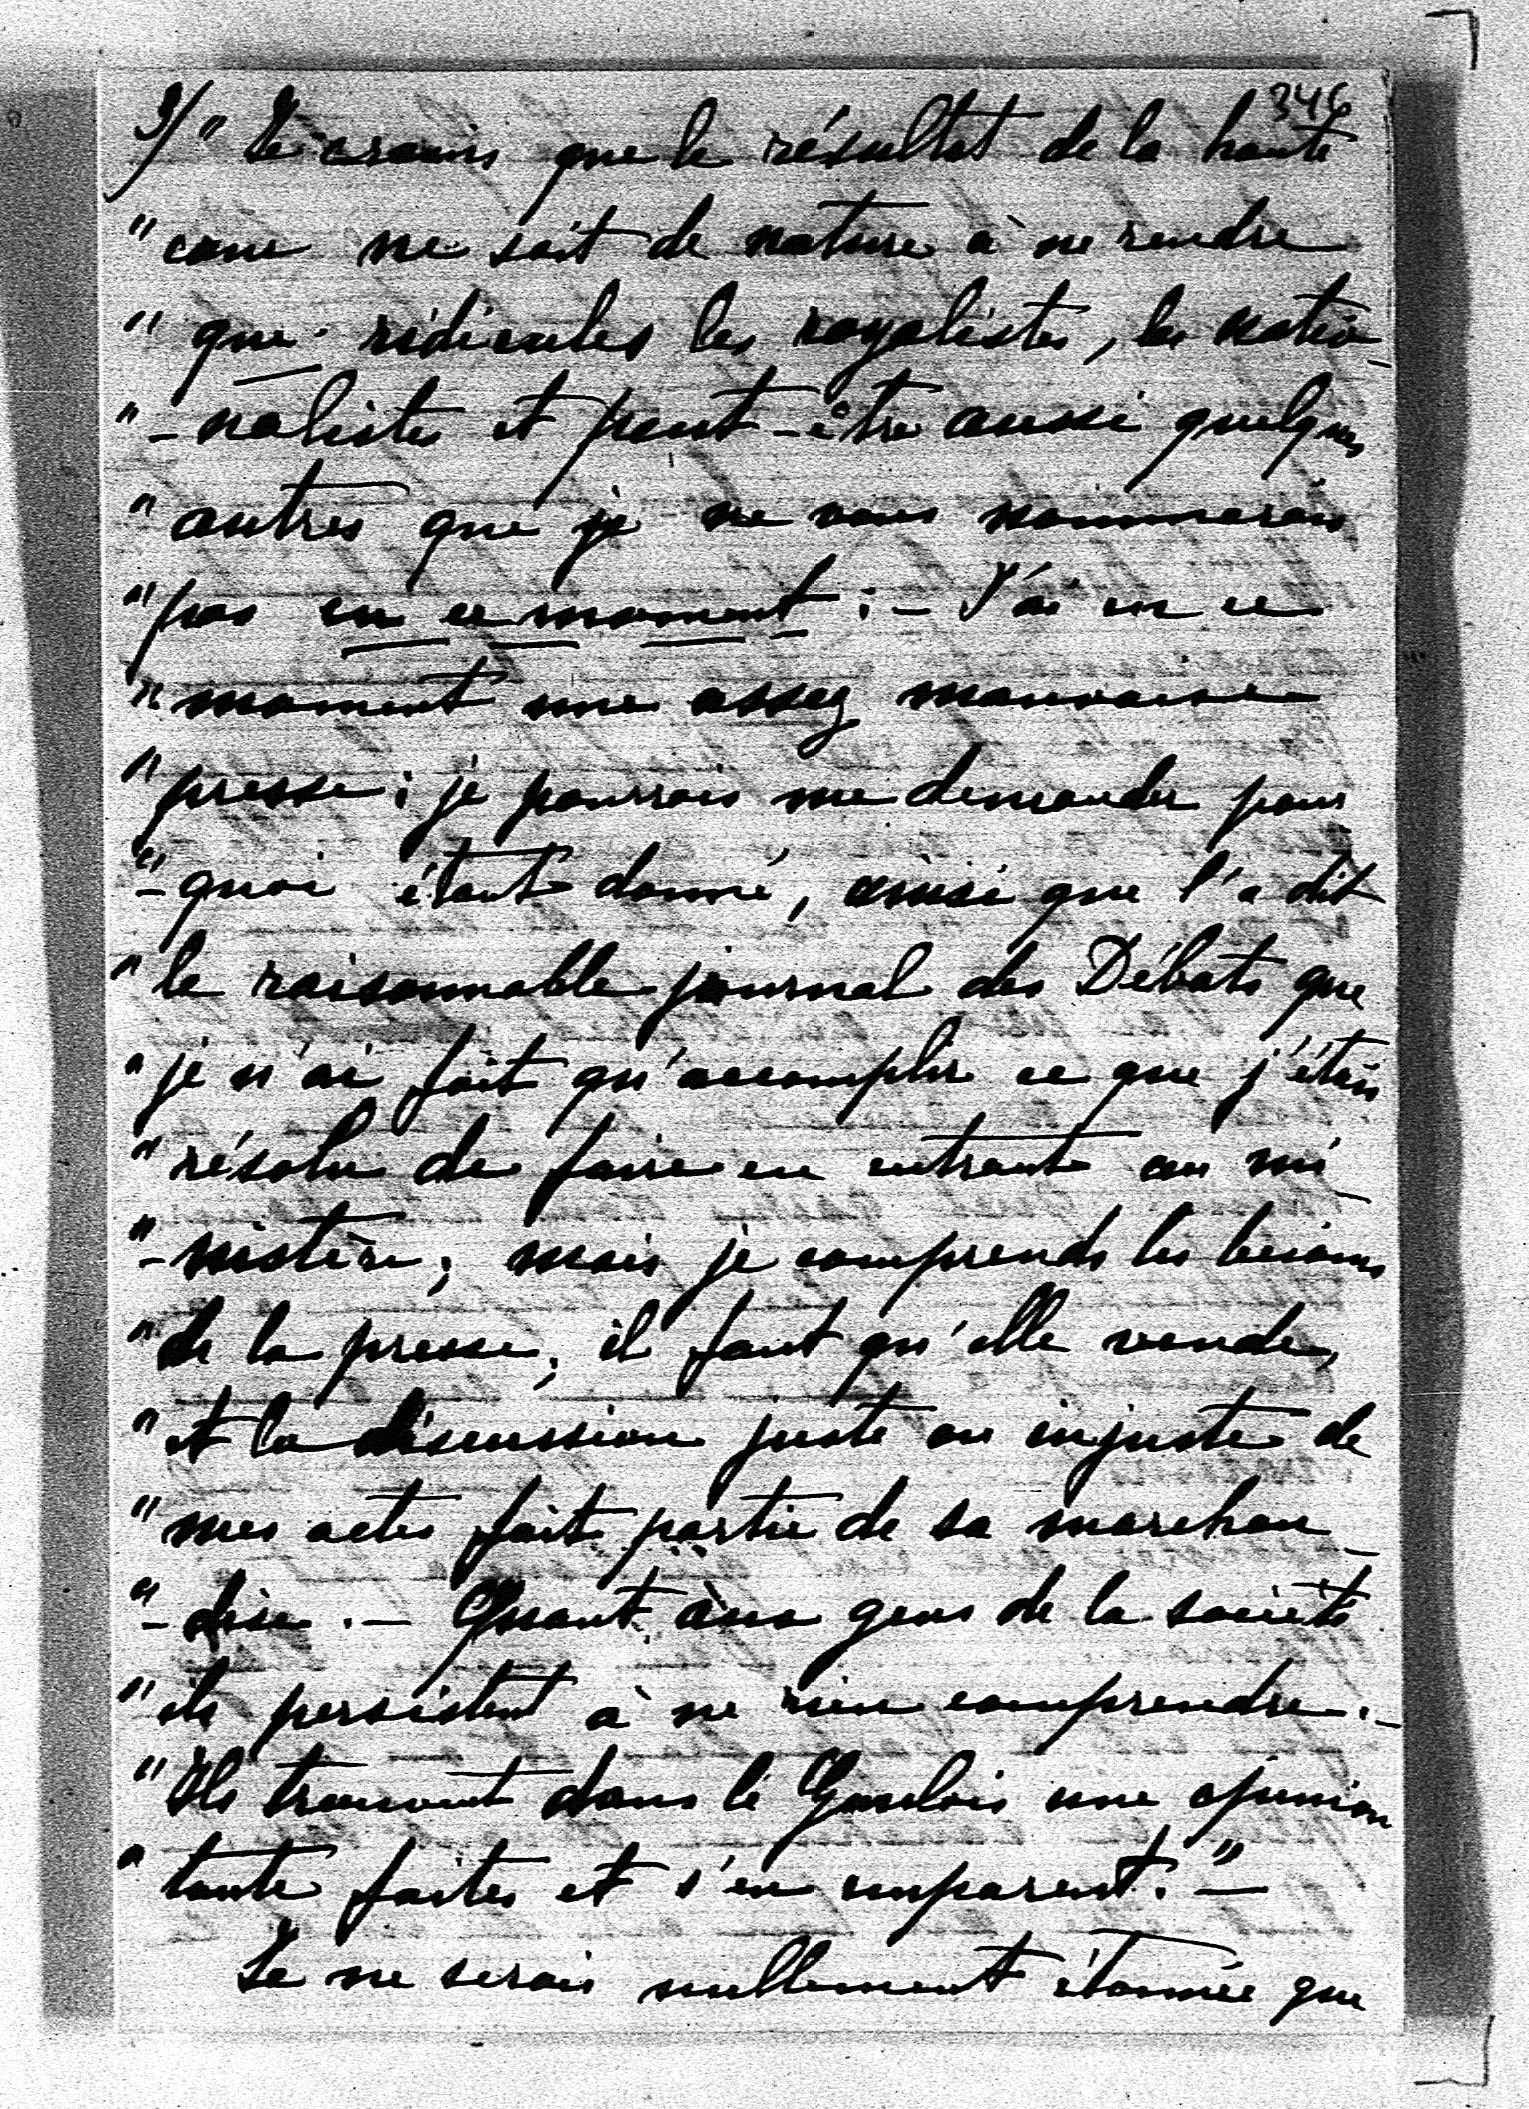 346
3/ " Je crains que le résultat de la haute
" cour ne soit de nature à ne rendre
" que ridicules les royalistes, les natio-
" -nalistes et peut-être aussi quelques
" autres que je ne vous nommerais
" pas en ce moment : – J'ai en ce
" moment une assez mauvaise
" presse ; je pourrais me demander pour
" -quoi étant donné, ainsi que l'a dit
" le raisonnable journal des Débats que
" je n'ai fait qu'accomplir ce que j'étais
" résolu de faire en entrant au mi-
" -nistère ; mais je comprends les besoins
" de la presse ; il faut qu'elle vende,
" et la discussion juste ou injuste de
" mes actes fait partie de sa marchan-
" -dise . – Quant aux gens de la société
" ils persistent à ne rien comprendre . –
" Ils trouvent dans le Gaulois une opinion
" toute faites et s'en emparent. " –
Je ne serais nullement étonnée que